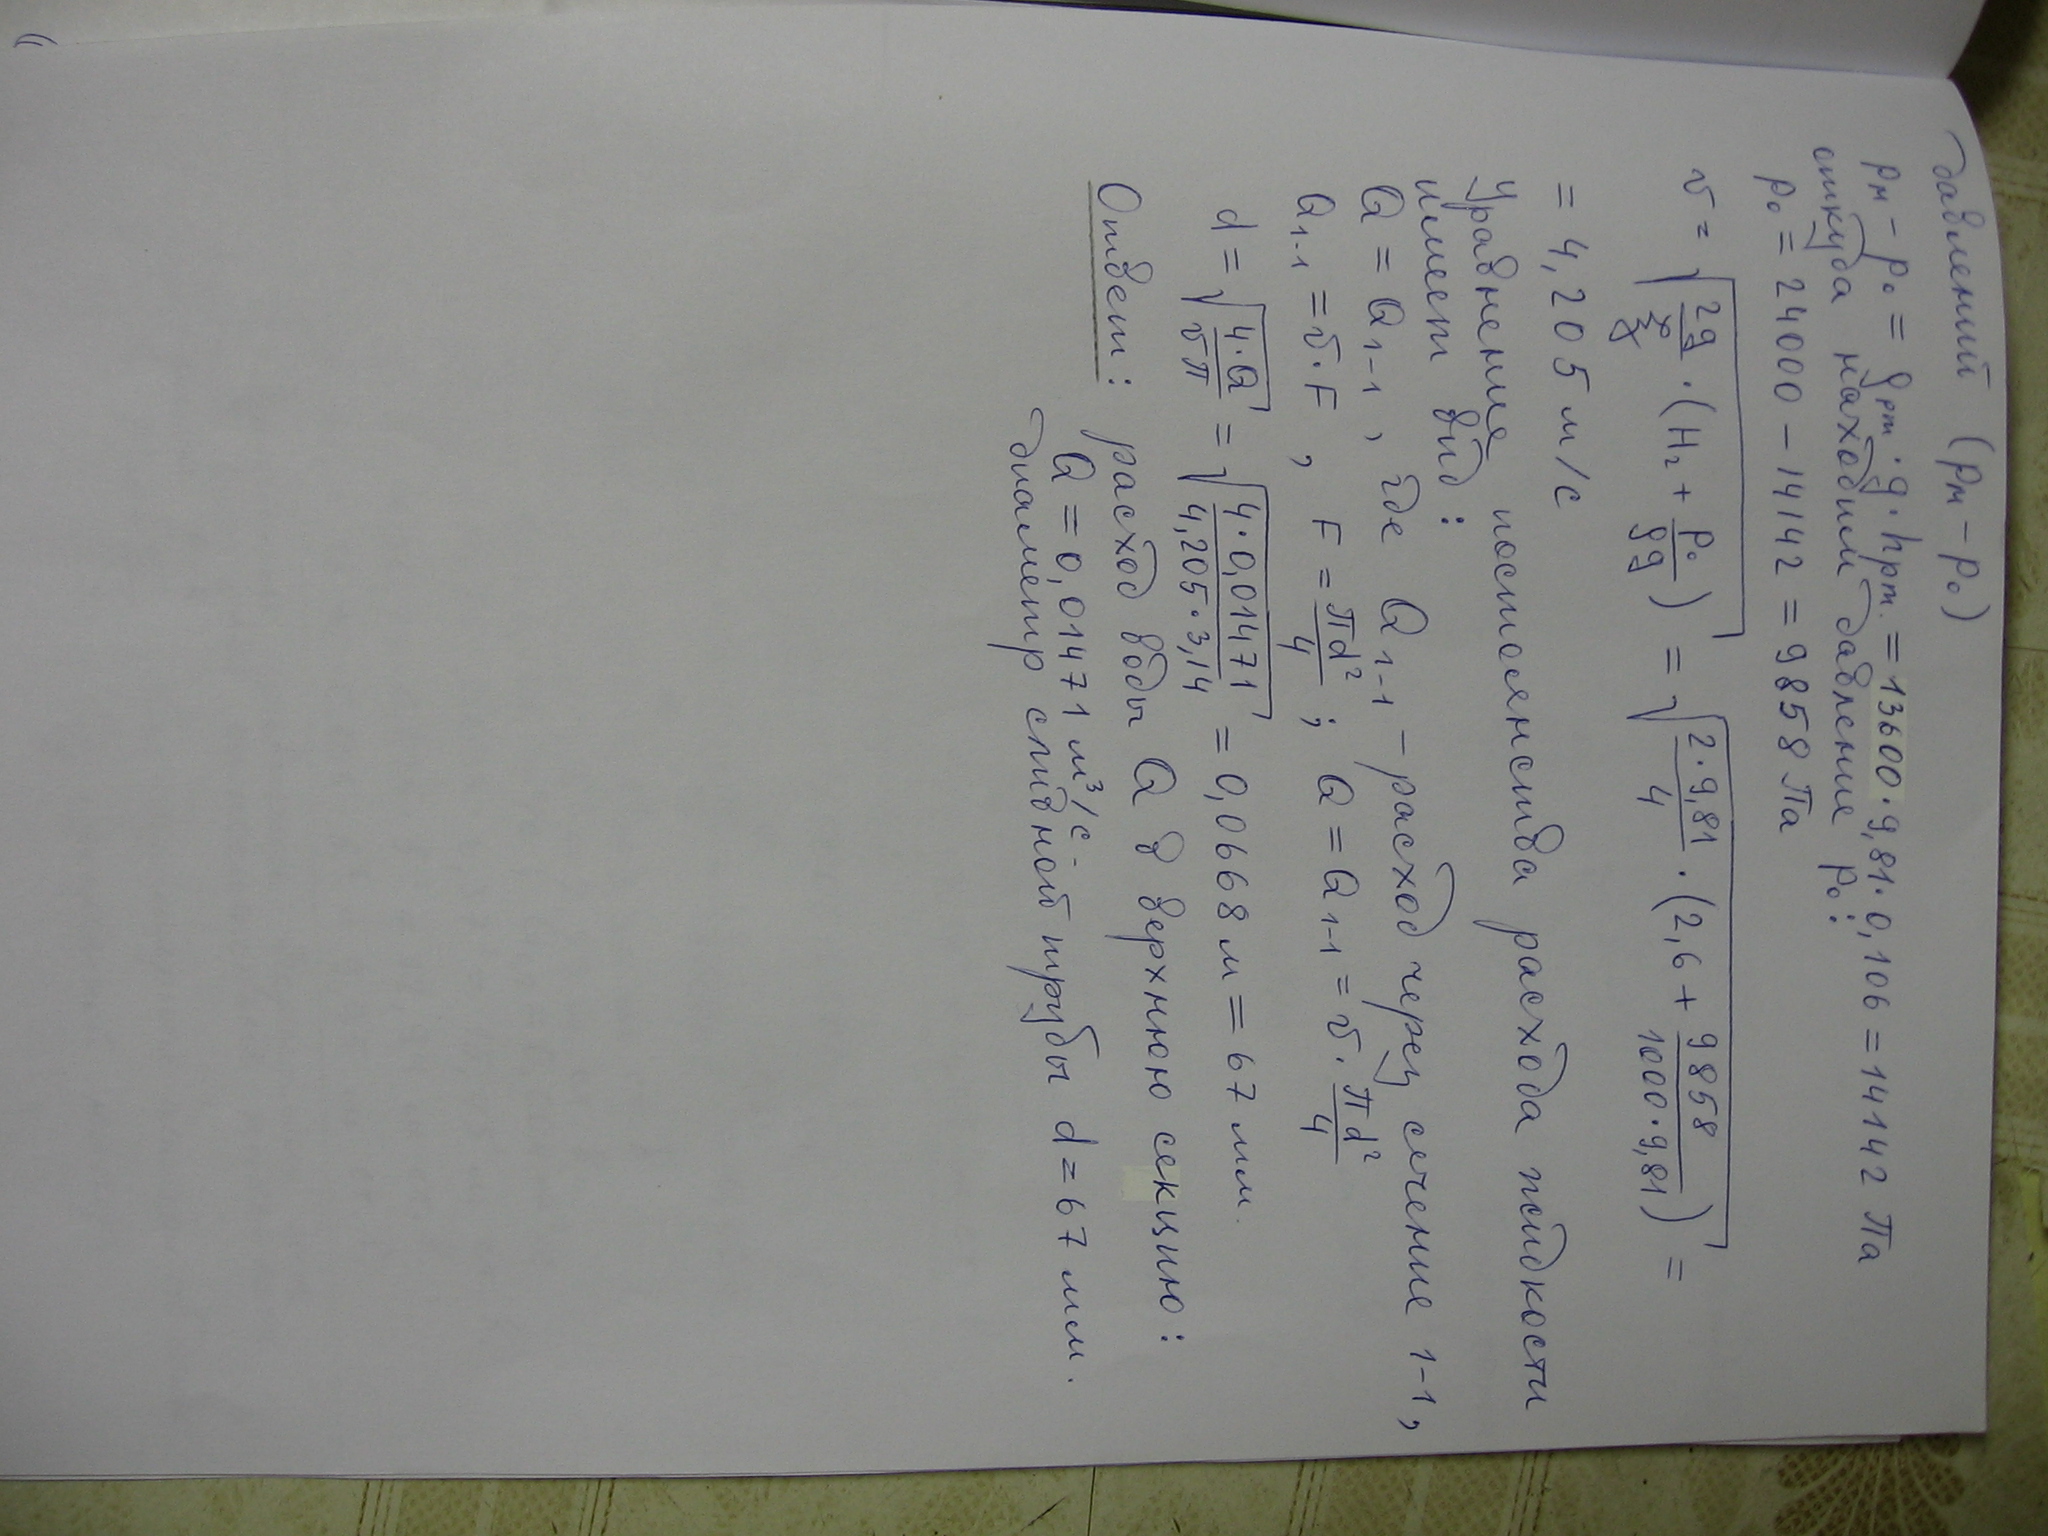 давлений (pм – p₀)
pм – p₀ = ρрт. · g · hрт. = 13600 · 9,81 · 0,106 = 14142 Па
откуда находим давление p₀:
p₀ = 24000 – 14142 = 9858 Па
v = √(2g/ξ · (H₂ + p₀/ρg)) = √(2·9,81/4 · (2,6 + 9858/1000·9,81)) =
= 4,205 м/с
Уравнение постоянства расхода жидкости
имеет вид:
Q = Q₁₋₁, где Q₁₋₁ – расход через сечение 1–1,
Q₁₋₁ = v·F, F = πd²/4; Q = Q₁₋₁ = v · πd²/4
d = √(4·Q/vπ) = √(4·0,01471/4,205·3,14) = 0,0668 м = 67 мм.
Ответ: расход воды Q в верхнюю секцию:
Q = 0,01471 м³/с -
диаметр сливной трубы d = 67 мм.